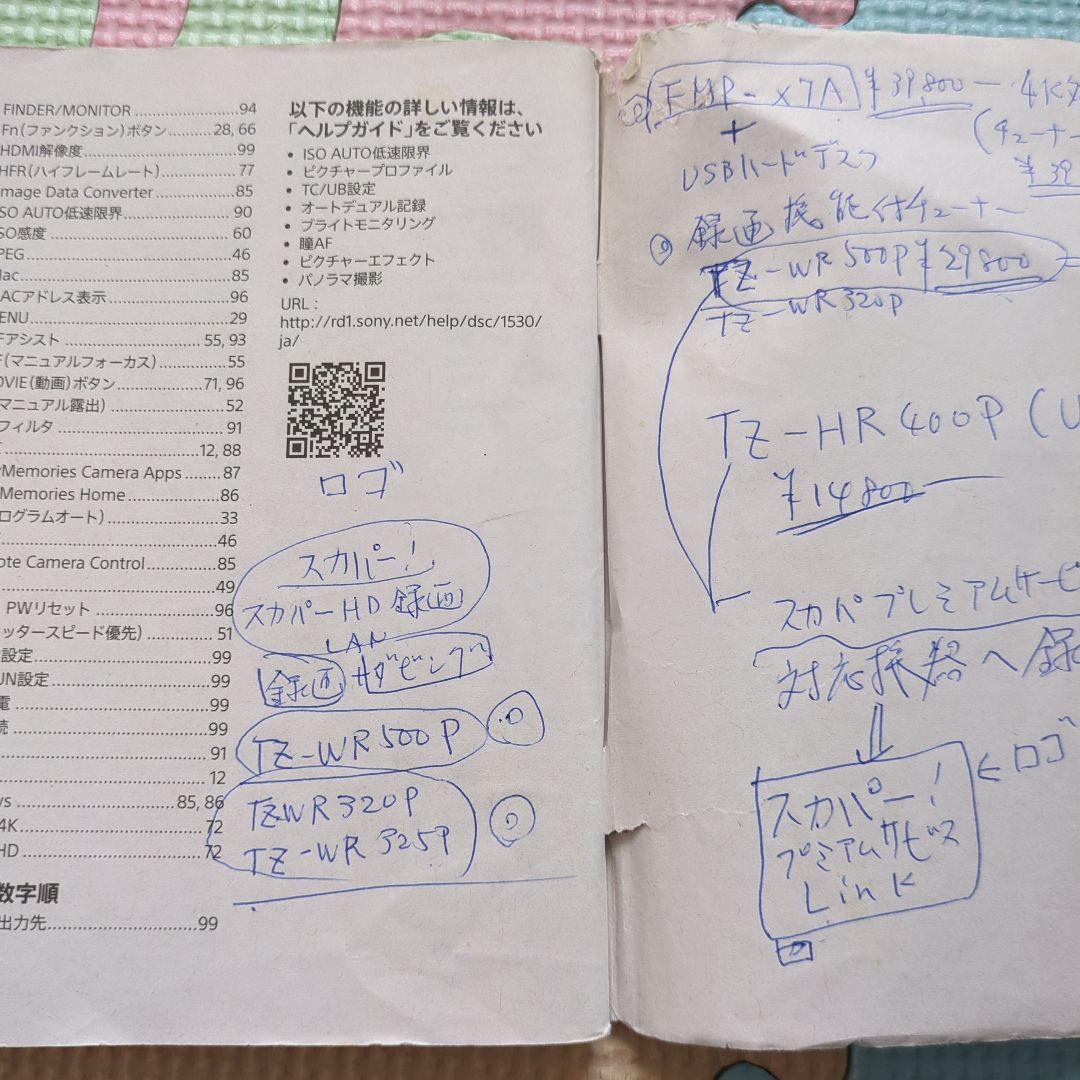 FINDER/MONITOR 94
Fn(ファンクション)ボタン 28, 66
HDMI解像度 99
HFR(ハイフレームレート) 77
mage Data Converter 85
SO AUTO低速限界 90
SO感度 60
PEG 46
Mac 85
ACアドレス表示 96
ENU 29
Fアシスト 55, 93
F(マニュアルフォーカス) 55
OVIE(動画)ボタン 71, 96
マニュアル露出) 52
フィルタ 91
12, 88
yMemories Camera Apps 87
Memories Home 86
ログラムオート) 33
46
ote Camera Control 85
49
PWリセット 96
ッタースピード優先) 51
設定 99
UN設定 99
電 99
続 99
91
12
ys 85, 86
4K 72
HD 72
数字順
出力先 99
以下の機能の詳しい情報は、
「ヘルプガイド」をご覧ください
• ISO AUTO低速限界
• ピクチャープロファイル
• TC/UB設定
• オートデュアル記録
• ブライトモニタリング
• 瞳AF
• ピクチャーエフェクト
• パノラマ撮影
URL :
http://rd1.sony.net/help/dsc/1530/
ja/
ロゴ
スカパー!
スカパーHD録画
LAN
録画 ダビング
TZ-WR500P
TZWR320P
TZ-WR325P
FMP-X7A ¥39,800 — 4K
+ (チューナー
USBハードデスク ¥39
録画機能付チューナー
TZ-WR500P ¥29800
TZ-WR320P
TZ-HR400P (U
¥14800
スカパプレミアムサービ
対応機器へ録
スカパー! ←ロゴ
プレミアムサービス
Link